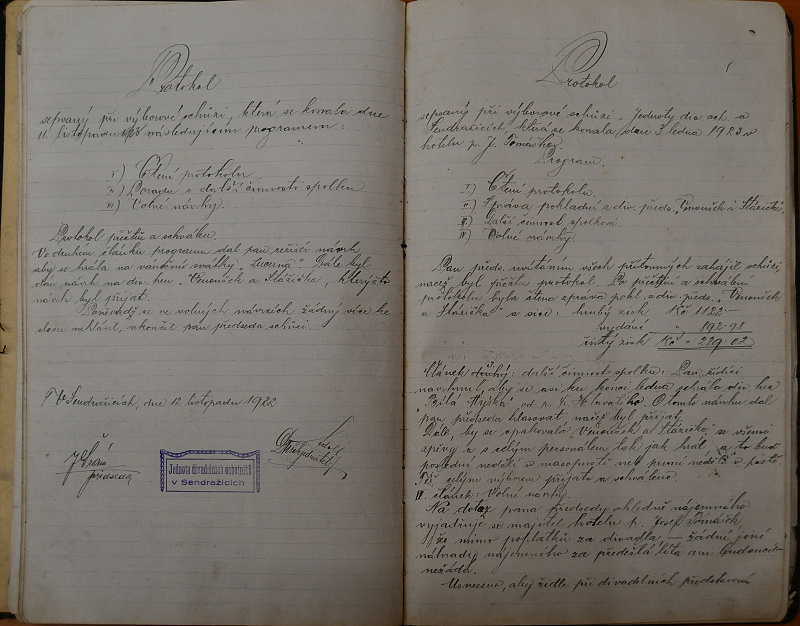 Protokol
sepsaný při výborové schůzi, která se konala dne
11. listopadu následujícím programem:
I) Čtení protokolu
II) Porada o další činnosti spolku
III) Volné návrhy.
Protokol přečten a schválen.
Ve druhém článku programu dal pan režisér návrh,
aby se hrála na vánoční svátky "Lucerna". Dále byl
dán návrh na div. hru "Venoušek a Stázička", kterýžto
návrh byl přijat.
Poněvadž se ve volných návrzích žádný více ke
slovu nehlásil, ukončil pan předseda schůzi.
V Sendražicích, dne 12. listopadu 1922
předseda
Jednota divadelních ochotníků
v Sendražicích
Protokol
sepsaný při výborové schůzi "Jednoty div. och. v
Sendražicích, která se konala dne 3 ledna 1923 v
hotelu p. J. Tomáška.
Program.
I) Čtení protokolu.
II) Zpráva pokladní z div. předs. "Venoušek a Stázička"
III) Další činnost spolková.
IV) Volné návrhy.
Pan předs. uvítáním všech přítomných zahájil schůzi,
načež byl přečten protokol. Po přečtení a schválení
protokolu byla čtena zpráva pokl. z div. předs. "Venoušek
a Stázička" a sice: hrubý zisk Kč 1122.-
vydáno " 892.98
čistý zisk Kč 229.02
Článek druhý: další činnost spolku: Pan režisér
navrhnul, aby se asi ku konci ledna sehrála div. hra
od p. Hlavatého. O tomto návrhu dal
pan předseda hlasovat, načež byl přijat.
Dále, by se opakovala "Venoušek a Stázička" se všemi
zpěvy a s celým personálem tak jak hrál, a to buď
poslední neděli v masopustě neb první neděli v postě
Též celým výborem přijato a schváleno.
článek: Volné návrhy.
Na dotaz pana předsedy ohledně nájemného
vyjadřuje se majitel hotelu p. Josef Tomášek
že mimo poplatků za divadla — žádné jiné
náhrady nájemného za předešlá léta ani budoucně
nežádá.
Usneseno, aby židle při divadelních představení